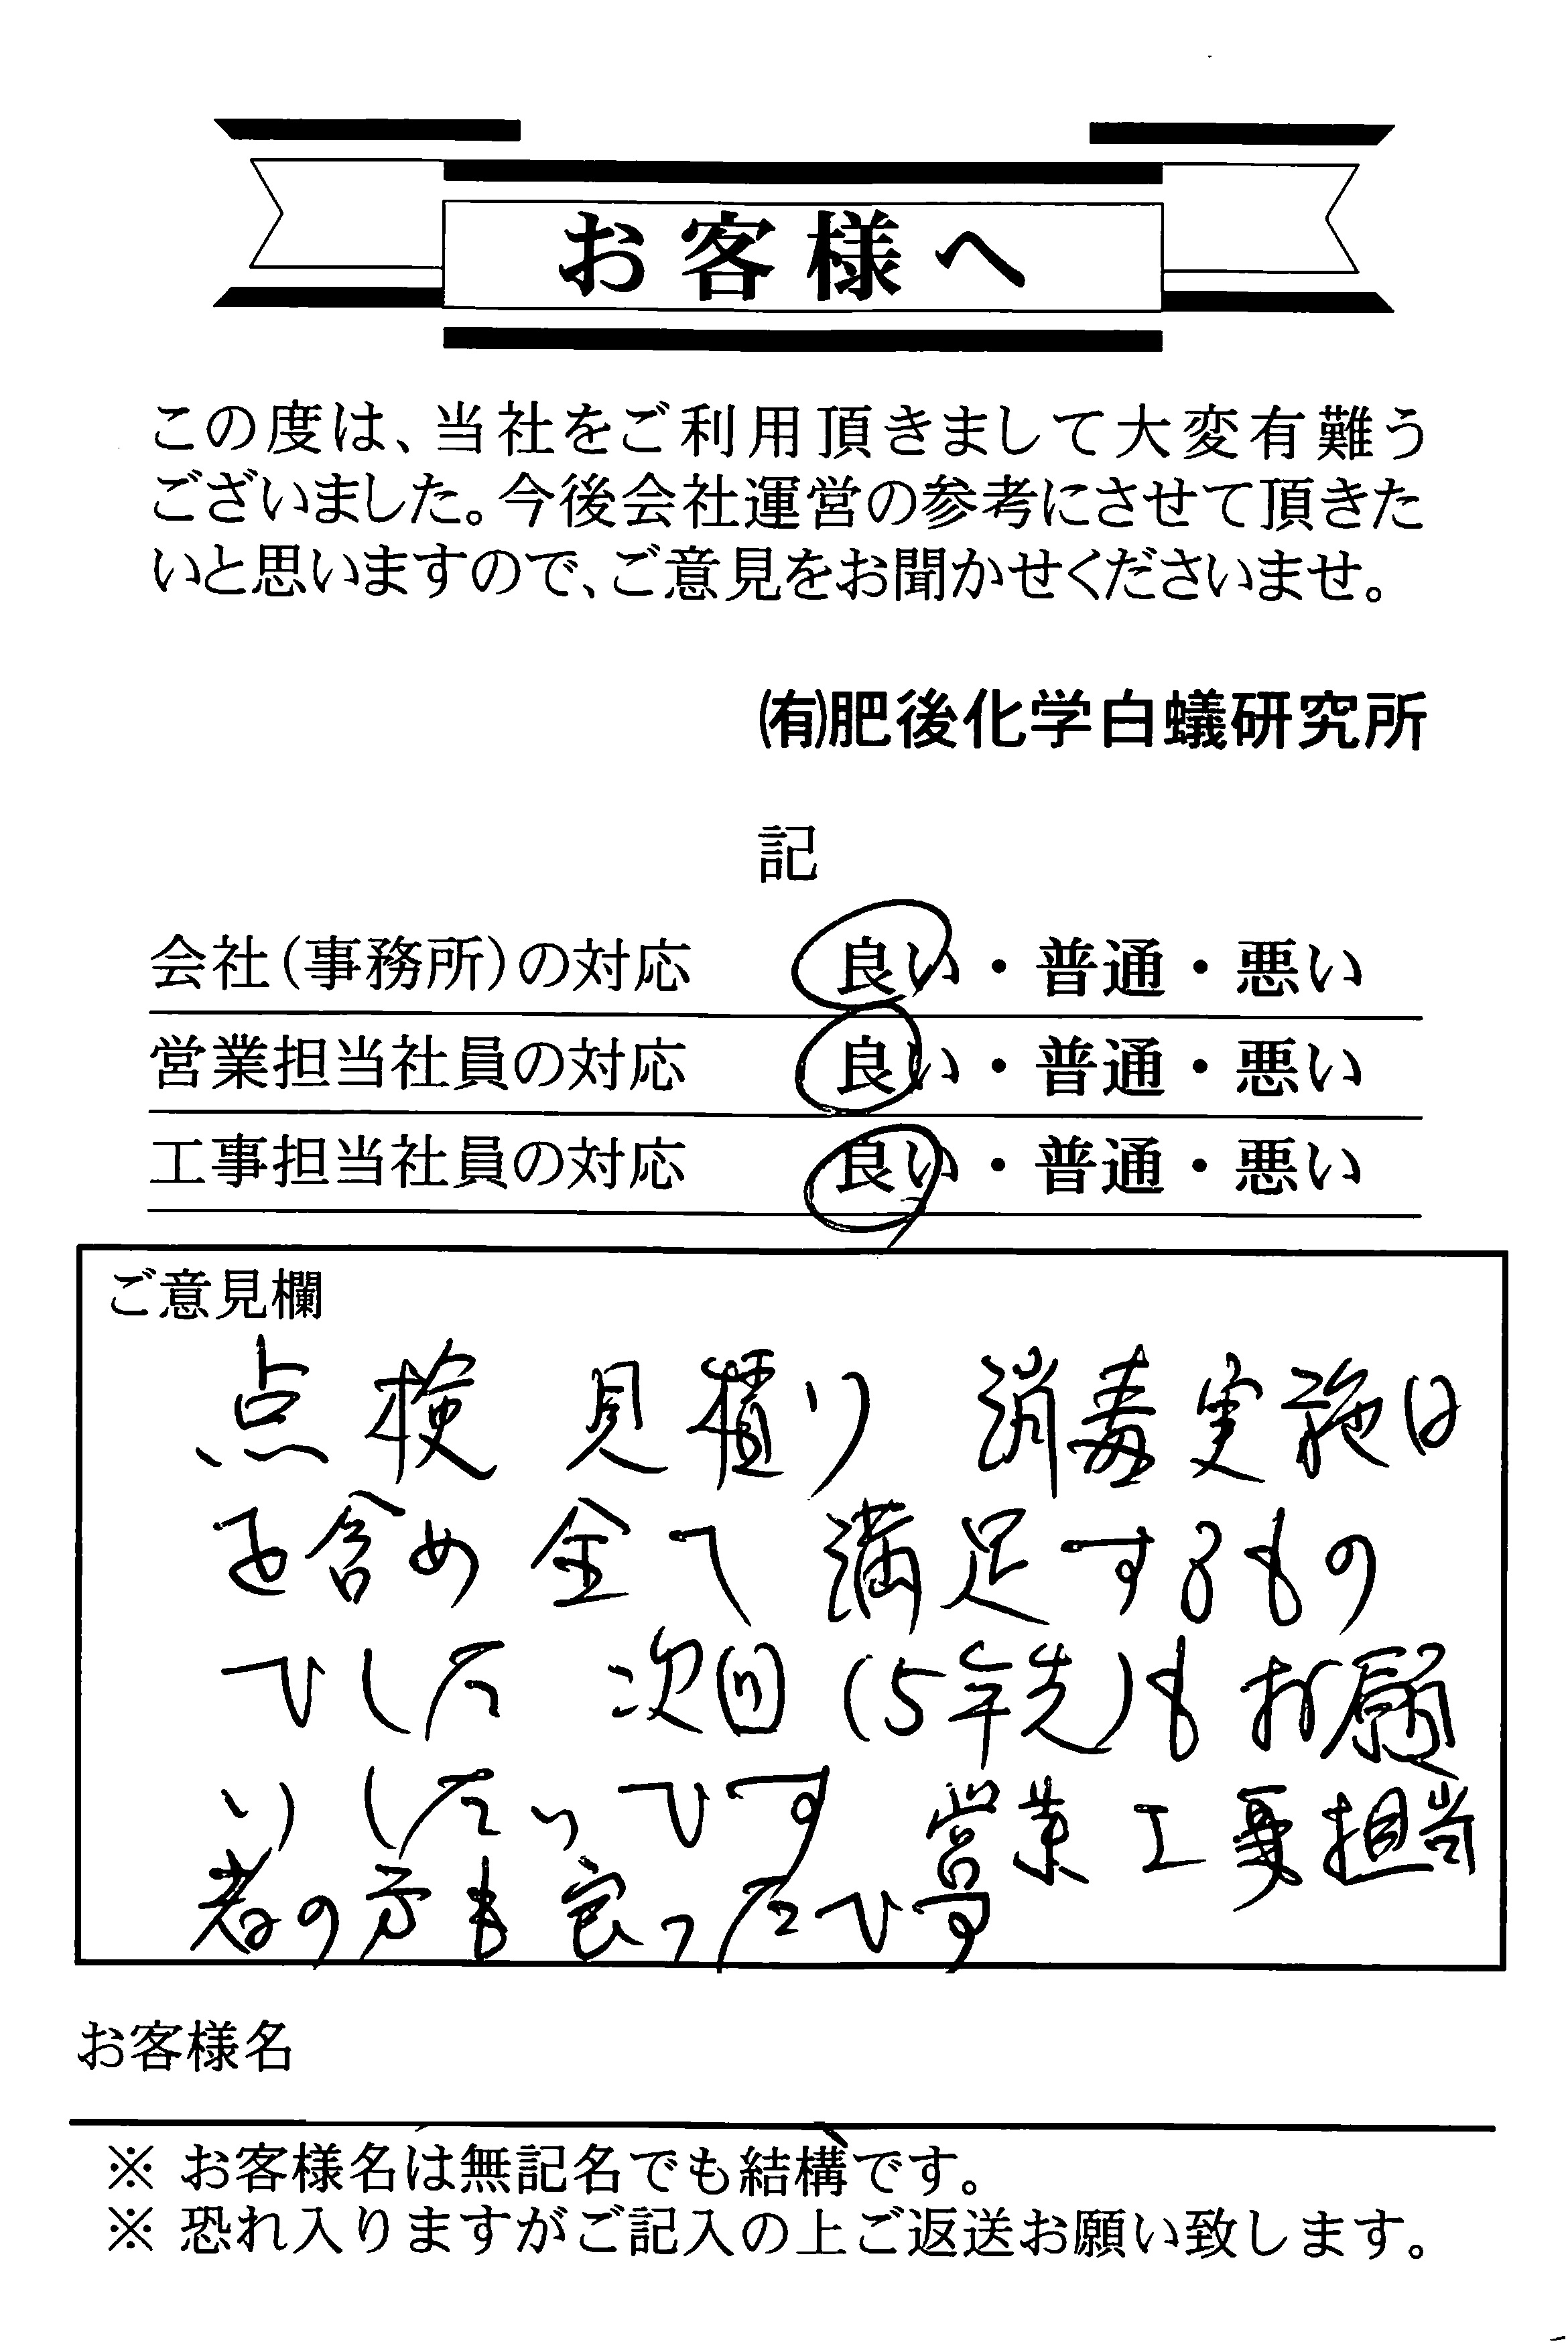 お客様へ
この度は、当社をご利用頂きまして大変有難う
ございました。今後会社運営の参考にさせて頂きた
いと思いますので、ご意見をお聞かせくださいませ。
㈲肥後化学白蟻研究所
記
会社(事務所)の対応 良い・普通・悪い
営業担当社員の対応 良い・普通・悪い
工事担当社員の対応 良い・普通・悪い
ご意見欄
点検 見積り 消毒実施は
を含め 全て 満足するもの
でした 次回(5年先)も お願
いしたいです 営業 工事担当
者の方も良ったです
お客様名
※ お客様名は無記名でも結構です。
※ 恐れ入りますがご記入の上ご返送お願い致します。